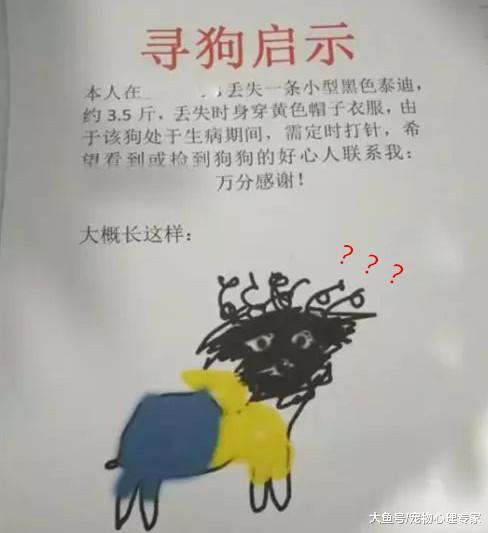 寻狗启示
本人在 丢失一条小型黑色泰迪,
约 3.5 斤，丢失时身穿黄色帽子衣服，由
于该狗处于生病期间，需定时打针，希
望看到或捡到狗狗的好心人联系我：
万分感谢！
大概长这样：
? ? ?
大鱼号/宠物心理专家